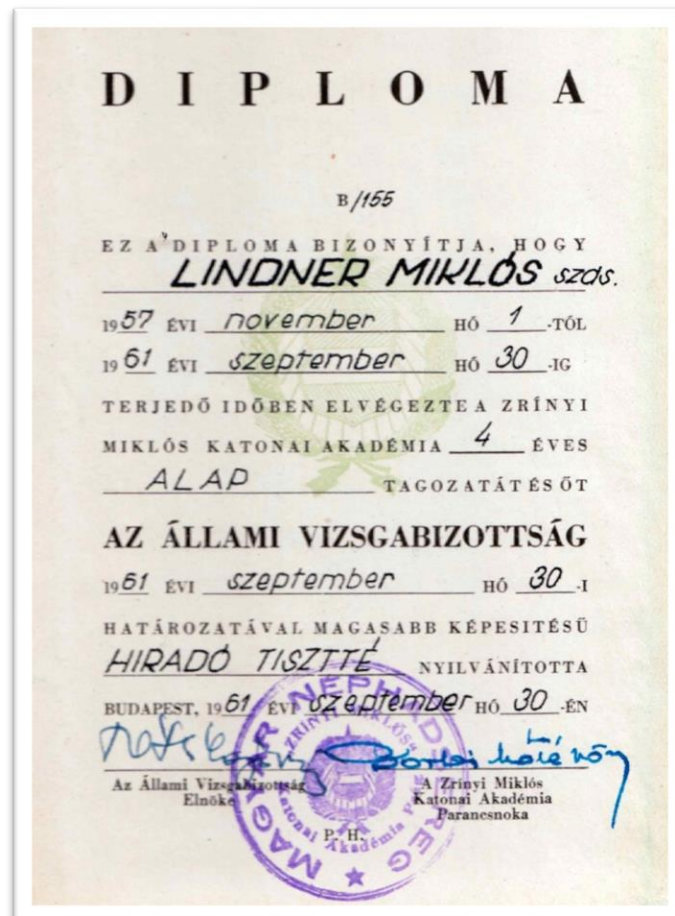 DIPLOMA
B/155
EZ A DIPLOMA BIZONYÍTJA, HOGY
LINDNER MIKLÓS szds.
1957 ÉVI november HÓ 1 -TÓL
1961 ÉVI szeptember HÓ 30 -IG
TERJEDŐ IDŐBEN ELVÉGEZTE A ZRÍNYI
MIKLÓS KATONAI AKADÉMIA 4 ÉVES
ALAP TAGOZATÁT ÉS ŐT
AZ ÁLLAMI VIZSGABIZOTTSÁG
1961 ÉVI szeptember HÓ 30 -I
HATÁROZATÁVAL MAGASABB KÉPESITÉSŰ
HIRADÓ TISZTTÉ NYILVÁNÍTOTTA
BUDAPEST, 1961 ÉVI szeptember HÓ 30 -ÉN
Az Állami Vizsgabizottság
Elnöke
A Zrínyi Miklós
Katonai Akadémia
Parancsnoka
P. H.
MAGYAR NÉPHADSEREG
"ZRINYI MIKLÓS"
Katonai Akadémia